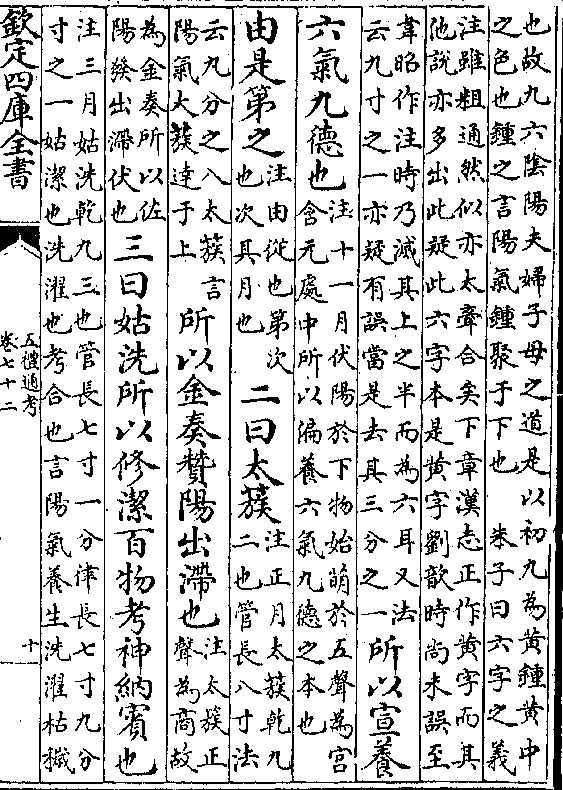 也故九六陰陽夫婦子母之道是以初九為黃鍾黃中
之色也鍾之言陽氣鍾聚于下也　朱子曰六字之義
注雖粗通然似亦太牽合矣下章漢志正作黃字而其
他說亦多出此疑此六字本是黃字劉歆時尚未誤至
韋昭作注時乃滅其上之半而為六耳又法
云九寸之一亦疑有誤當是去其三分之一
所以宣養
六氣九德也
注十一月伏陽於下物始萌於五聲為宮
含元處中所以徧養六氣九德之本也
由是第之
注由從也第次
也次其月也
二曰太蔟
注正月太蔟乾九
二也管長八寸法
云九分之八太蔟言
陽氣大蔟達于上
所以金奏贊陽出滯也
注太蔟正
聲為商故
為金奏所以佐
陽發出滯伏也
三曰姑洗所以修潔百物考神納賓也
注三月姑洗乾九三也管長七寸一分律長七寸九分
寸之一姑潔也洗濯也考合也言陽氣養生洗濯枯穢
欽定四庫全書
五禮通考
卷七十二
十